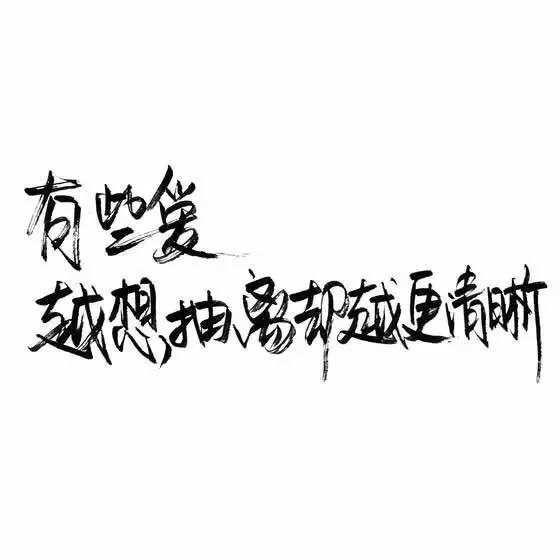 有些爱
越想抽离却越更清晰